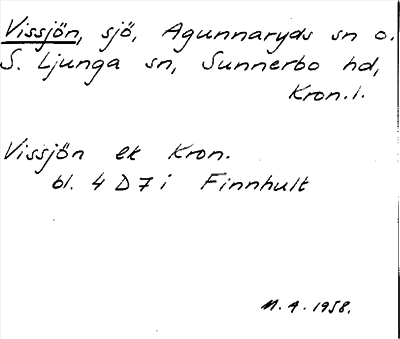 Vissjön, sjö, Agunnaryds sn o.
S. Ljunga sn, Sunnerbo hd,
Kron.l.
Vissjön ek Kron.
bl. 4 D 7 i Finnhult
M.A. 1958.